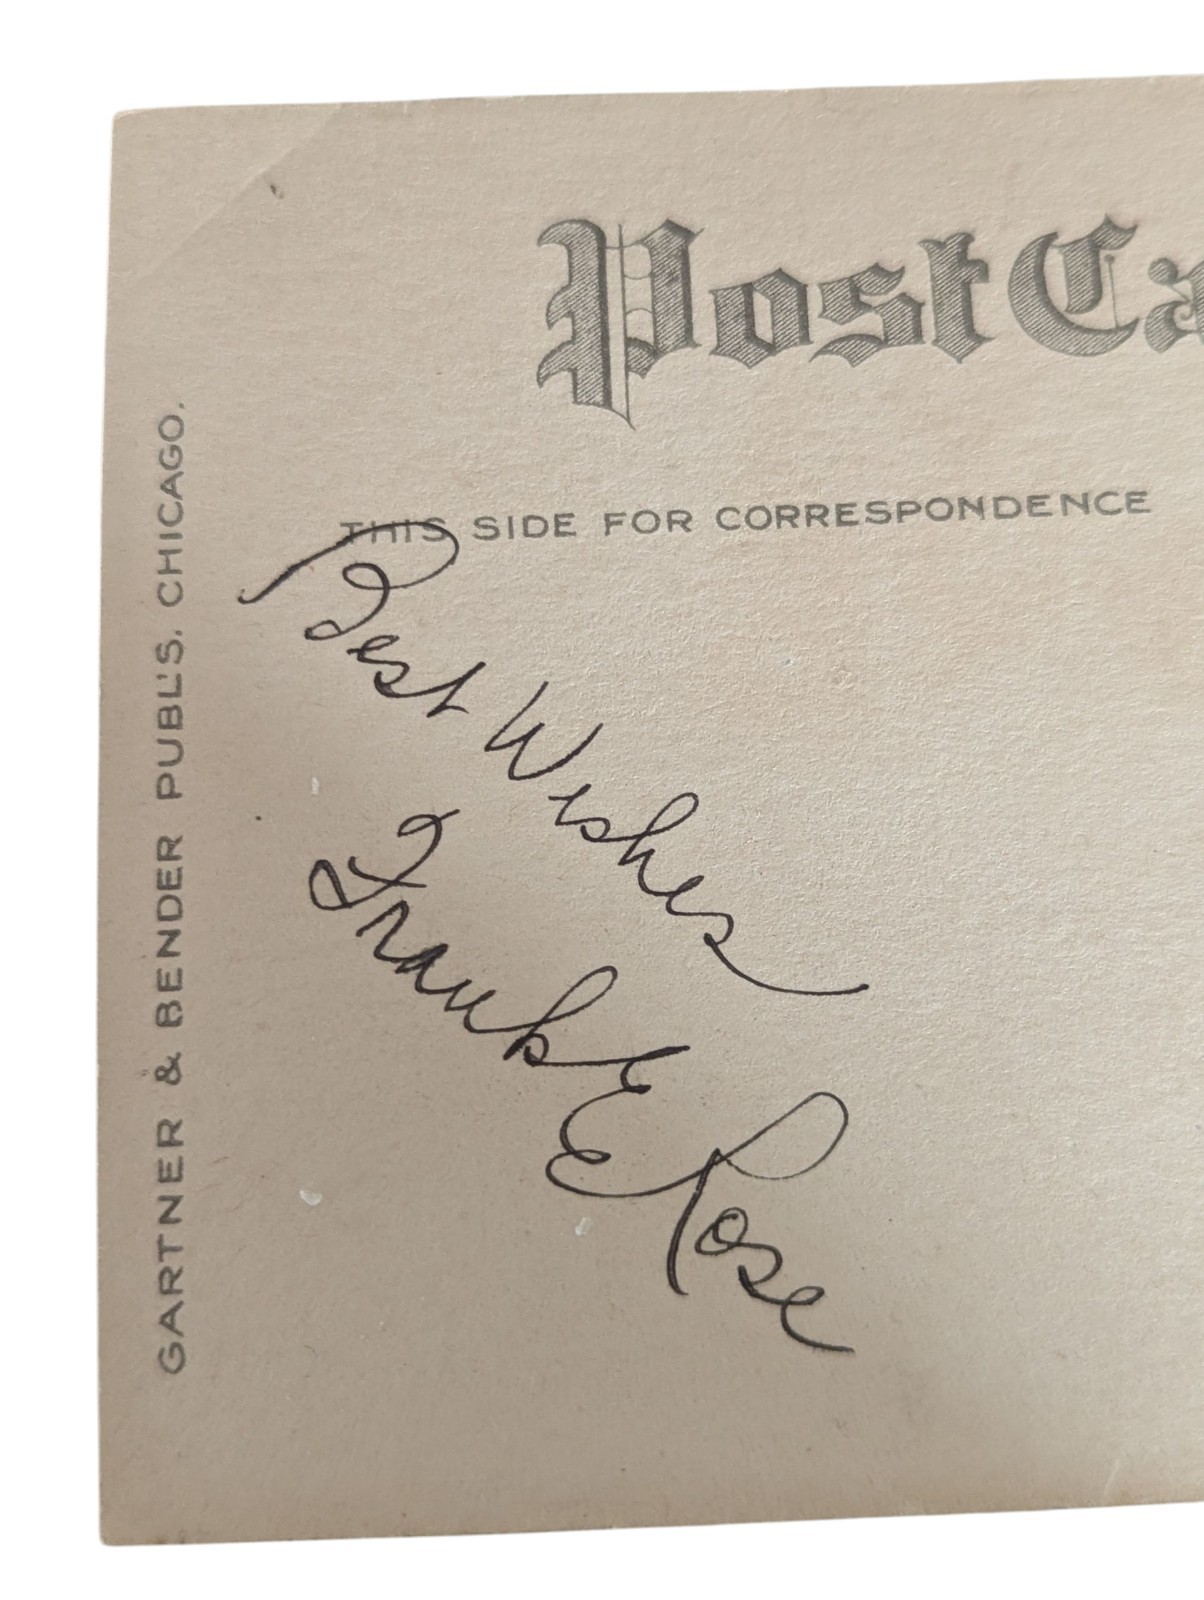 Post Ca
THIS SIDE FOR CORRESPONDENCE
GARTNER & BENDER PUBL'S. CHICAGO.
Best Wishes
Frank E Rose